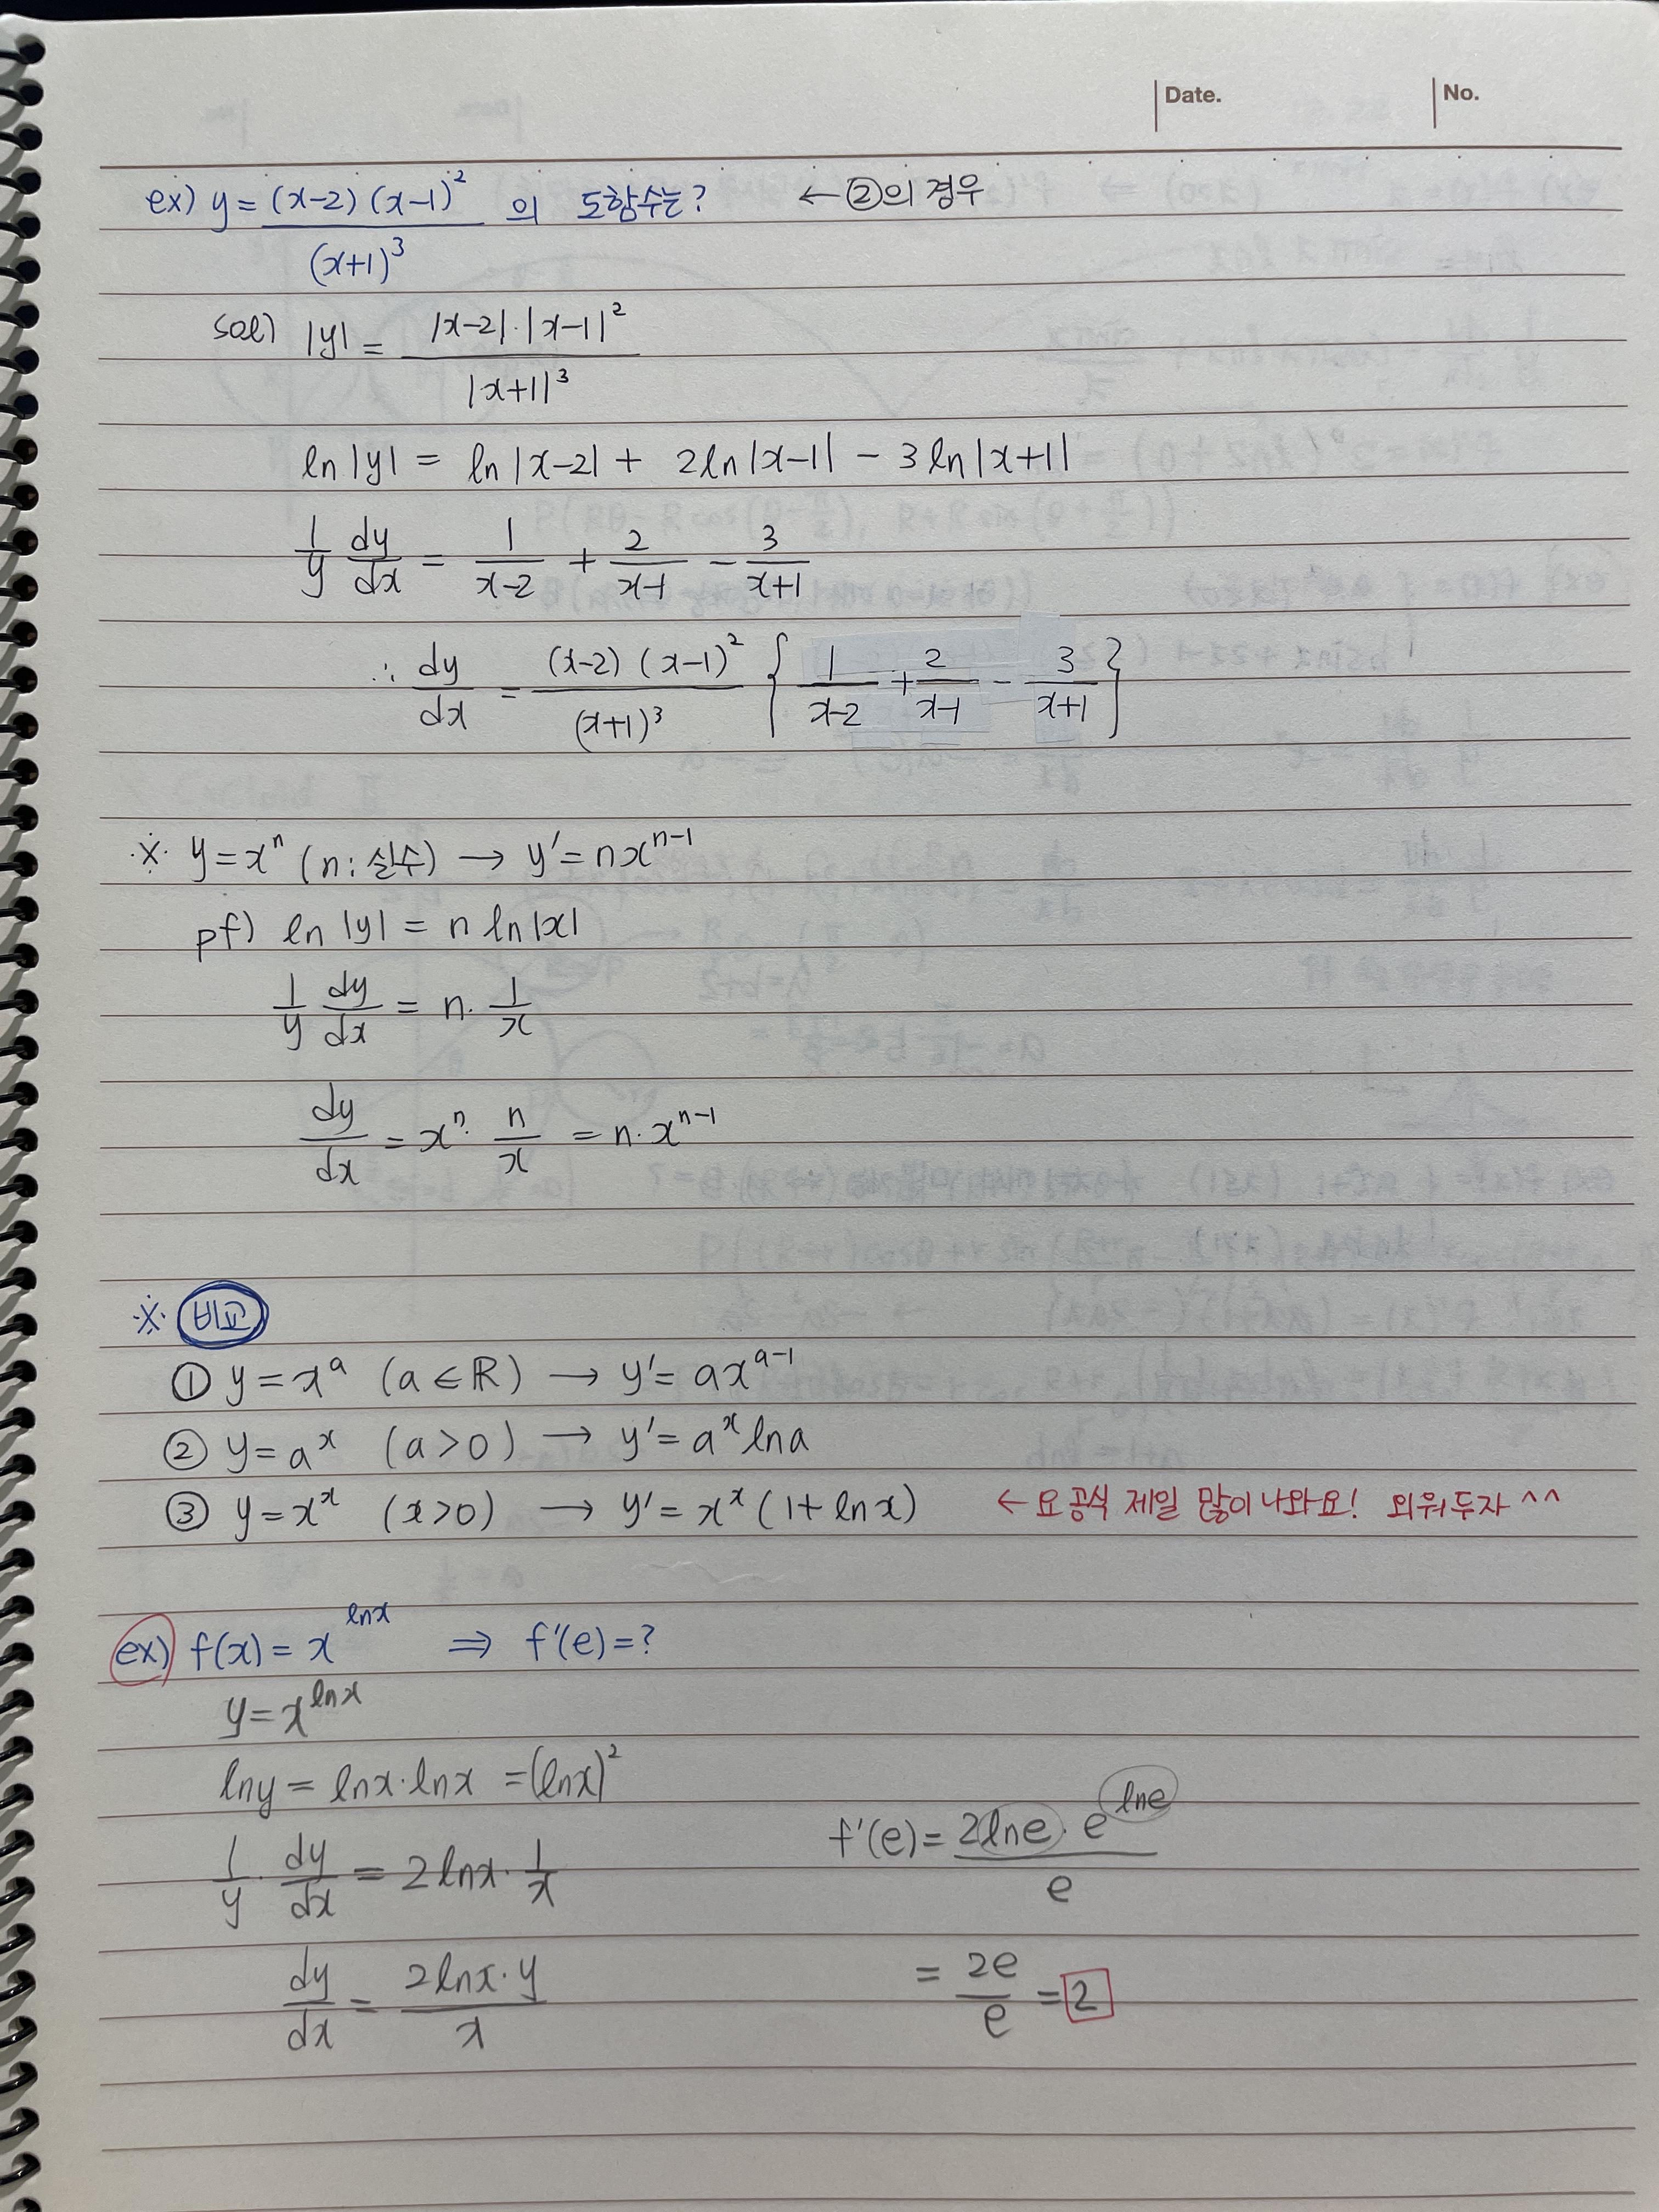 Date. No.
ex) y = (x-2)(x-1)² / (x+1)³ 의 도함수는? ← ②의 경우
sol) |y| = |x-2|·|x-1|² / |x+1|³
ln|y| = ln|x-2| + 2ln|x-1| - 3ln|x+1|
1/y dy/dx = 1/(x-2) + 2/(x-1) - 3/(x+1)
∴ dy/dx = (x-2)(x-1)² / (x+1)³ { 1/(x-2) + 2/(x-1) - 3/(x+1) }
※ y = xⁿ (n: 실수) → y' = nxⁿ⁻¹
pf) ln|y| = n ln|x|
1/y dy/dx = n· 1/x
dy/dx = xⁿ· n/x = n·xⁿ⁻¹
※ 비교
① y = x^a (a∈ℝ) → y' = ax^(a-1)
② y = a^x (a>0) → y' = a^x lna
③ y = x^x (x>0) → y' = x^x (1+lnx) ← 요 공식 제일 많이 나와요! 외워두자 ^^
ex) f(x) = x^lnx ⇒ f'(e) = ?
y = x^lnx
lny = lnx·lnx = (lnx)²
1/y · dy/dx = 2lnx· 1/x
dy/dx = 2lnx·y / x
f'(e) = 2lne·e^lne / e
= 2e/e = 2